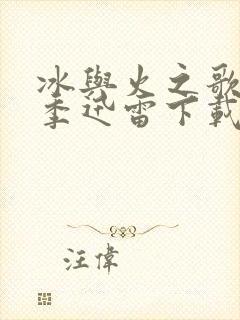 冰與火之歌
季迅雷下載
汪偉